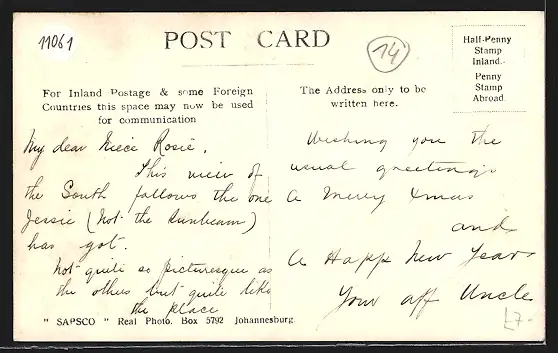 11061
POST CARD
14
Half-Penny
Stamp
Inland.
Penny
Stamp
Abroad.
For Inland Postage & some Foreign
Countries this space may now be used
for communication
The Address only to be
written here.
My dear Niece Rosie,
This view of
the South follows the one
Jessie (not the Sunbeam)
has got.
Not quite so picturesque as
the others but quite like
the place
Wishing you the
usual greetings
A Merry Xmas
and
A Happ New Year
Your aff Uncle
" SAPSCO " Real Photo. Box 5792 Johannesburg.
L7-